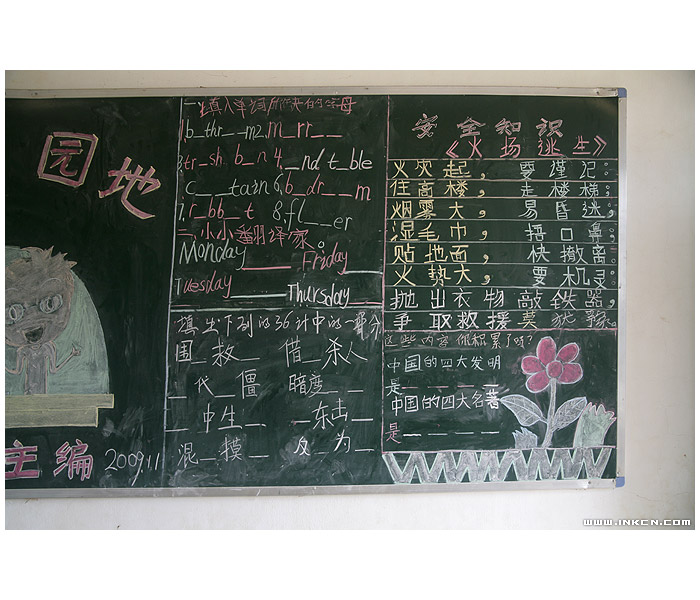 园地
主编 2009.11
一、填入单词所缺的字母
1.b_thr__m 2.m_rr__
3.tr_sh b_n 4.__nd t_ble
c__tain 6.b_dr__m
7.r_bb_t 8.fl__er
二、小小翻译家。
Monday____ Friday____
Tuesday____ Thursday____
填出下列的36计中的一部分
围_救_ 借_杀人
_代_僵 暗度__
_中生_ _东击_
混_摸_ 反_为_
安全知识
《火场逃生》
火灾起，要谨记：
住高楼，走楼梯；
烟雾大，易昏迷；
湿毛巾，捂口鼻；
贴地面，快撤离；
火势大，要机灵；
抛出衣物敲铁器，
争取救援莫犹豫。
这些内容你积累了吗？
中国的四大发明
是_ _ _ _
中国的四大名著
是_ _ _ _
www.INKCN.com